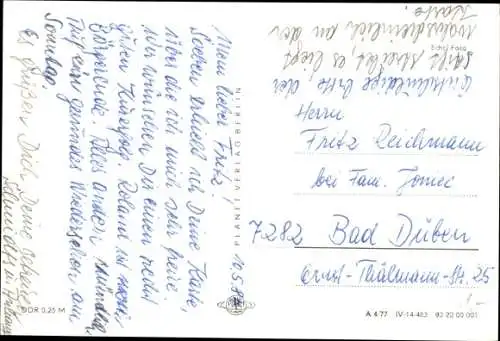 Entschuldige bitte der
Schrift, es liegt
wahrscheinlich an der
Karte.
Echt Foto
10.5.
Mein lieber Fritz!
Soeben erhielt ich Deine Karte,
über die ich mich sehr freue.
Wir wünschen Dir einen recht
guten Kurerfolg. Roland ist
Alles andere mündlich.
Auf ein gesundes Wiedersehen am
Sonntag.
Es grüßen Dich Deine
u.
PLANET-VERLAG BERLIN
Herrn
Fritz Reichmann
bei Fam.
7282 Bad Düben
Ernst-Thälmann-Str. 25
DDR 0,25 M
A 4/77 IV-14-483 02 22 00 001
1,-